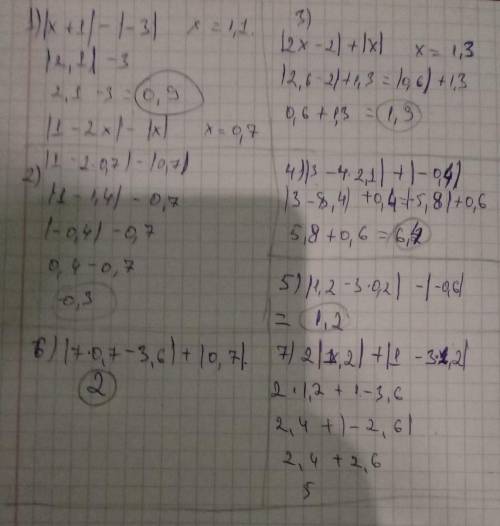 1) |x + 1| - |-3| x = 1,1.
|2,1| - 3
2,1 - 3 = 0,9
|1 - 2x| - |x| x = 0,7
2) |1 - 2·0,7| - |0,7|
|1 - 1,4| - 0,7
|-0,4| - 0,7
0,4 - 0,7
-0,3
6) |7·0,7 - 3,6| + |0,7|.
2
3)
|2x - 2| + |x| x = 1,3
|2,6 - 2| + 1,3 = |0,6| + 1,3
0,6 + 1,3 = 1,9
4) |3 - 4·2,1| + |-0,4|
|3 - 8,4| + 0,4 = |-5,8| + 0,6
5,8 + 0,6 =
5) |1,2 - 3·0,2| - |-0,6|
= 1,2
7) 2|1,2| + |1 - 3·1,2|
2·1,2 + 1 - 3,6
2,4 + |-2,6|
2,4 + 2,6
5